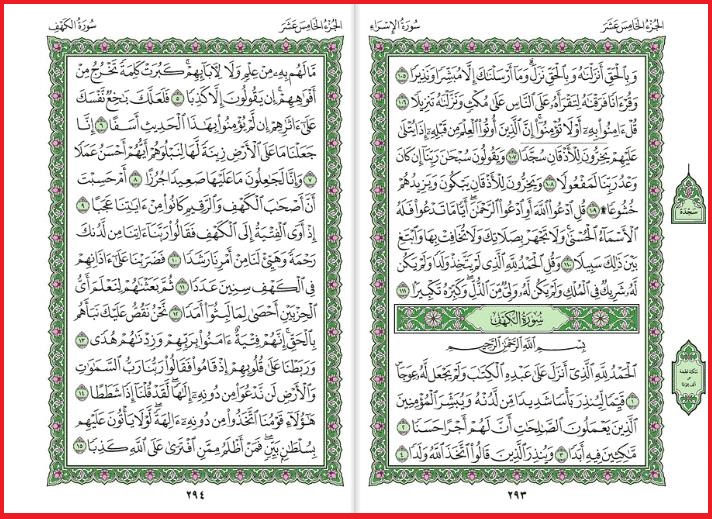 الجُزْءُ الخَامِسَ عَشَرَ
سُورَةُ الإِسْرَاءِ
وَبِالْحَقِّ أَنزَلْنَٰهُ وَبِالْحَقِّ نَزَلَ ۗ وَمَا أَرْسَلْنَٰكَ إِلَّا مُبَشِّرًا وَنَذِيرًا ١٠٥
وَقُرْءَانًا فَرَقْنَٰهُ لِتَقْرَأَهُۥ عَلَى النَّاسِ عَلَىٰ مُكْثٍ وَنَزَّلْنَٰهُ تَنزِيلًا ١٠٦
قُلْ ءَامِنُوا۟ بِهِۦٓ أَوْ لَا تُؤْمِنُوٓا۟ ۚ إِنَّ الَّذِينَ أُوتُوا۟ الْعِلْمَ مِن قَبْلِهِۦٓ إِذَا يُتْلَىٰ
عَلَيْهِمْ يَخِرُّونَ لِلْأَذْقَانِ سُجَّدًا ١٠٧ وَيَقُولُونَ سُبْحَٰنَ رَبِّنَآ إِن كَانَ
وَعْدُ رَبِّنَا لَمَفْعُولًا ١٠٨ وَيَخِرُّونَ لِلْأَذْقَانِ يَبْكُونَ وَيَزِيدُهُمْ
خُشُوعًا ۩ ١٠٩ قُلِ ادْعُوا۟ اللَّهَ أَوِ ادْعُوا۟ الرَّحْمَٰنَ ۖ أَيًّا مَّا تَدْعُوا۟ فَلَهُ
الْأَسْمَآءُ الْحُسْنَىٰ ۚ وَلَا تَجْهَرْ بِصَلَاتِكَ وَلَا تُخَافِتْ بِهَا وَابْتَغِ
بَيْنَ ذَٰلِكَ سَبِيلًا ١١٠ وَقُلِ الْحَمْدُ لِلَّهِ الَّذِى لَمْ يَتَّخِذْ وَلَدًا وَلَمْ يَكُن
لَّهُۥ شَرِيكٌ فِى الْمُلْكِ وَلَمْ يَكُن لَّهُۥ وَلِىٌّ مِّنَ الذُّلِّ ۖ وَكَبِّرْهُ تَكْبِيرًا ١١١
سُورَةُ الكَهْفِ
بِسْمِ اللَّهِ الرَّحْمَٰنِ الرَّحِيمِ
الْحَمْدُ لِلَّهِ الَّذِىٓ أَنزَلَ عَلَىٰ عَبْدِهِ الْكِتَٰبَ وَلَمْ يَجْعَل لَّهُۥ عِوَجَا
١ قَيِّمًا لِّيُنذِرَ بَأْسًا شَدِيدًا مِّن لَّدُنْهُ وَيُبَشِّرَ الْمُؤْمِنِينَ
الَّذِينَ يَعْمَلُونَ الصَّٰلِحَٰتِ أَنَّ لَهُمْ أَجْرًا حَسَنًا ٢
مَّٰكِثِينَ فِيهِ أَبَدًا ٣ وَيُنذِرَ الَّذِينَ قَالُوا۟ اتَّخَذَ اللَّهُ وَلَدًا ٤
٢٩٣
سجدة
سكتة لطيفة
الجُزْءُ الخَامِسَ عَشَرَ
سُورَةُ الكَهْفِ
مَّا لَهُم بِهِۦ مِنْ عِلْمٍ وَلَا لِءَابَآئِهِمْ ۚ كَبُرَتْ كَلِمَةً تَخْرُجُ مِنْ
أَفْوَٰهِهِمْ ۚ إِن يَقُولُونَ إِلَّا كَذِبًا ٥ فَلَعَلَّكَ بَٰخِعٌ نَّفْسَكَ
عَلَىٰٓ ءَاثَٰرِهِمْ إِن لَّمْ يُؤْمِنُوا۟ بِهَٰذَا الْحَدِيثِ أَسَفًا ٦ إِنَّا
جَعَلْنَا مَا عَلَى الْأَرْضِ زِينَةً لَّهَا لِنَبْلُوَهُمْ أَيُّهُمْ أَحْسَنُ عَمَلًا
٧ وَإِنَّا لَجَٰعِلُونَ مَا عَلَيْهَا صَعِيدًا جُرُزًا ٨ أَمْ حَسِبْتَ
أَنَّ أَصْحَٰبَ الْكَهْفِ وَالرَّقِيمِ كَانُوا۟ مِنْ ءَايَٰتِنَا عَجَبًا ٩
إِذْ أَوَى الْفِتْيَةُ إِلَى الْكَهْفِ فَقَالُوا۟ رَبَّنَآ ءَاتِنَا مِن لَّدُنكَ
رَحْمَةً وَهَيِّئْ لَنَا مِنْ أَمْرِنَا رَشَدًا ١٠ فَضَرَبْنَا عَلَىٰٓ ءَاذَانِهِمْ
فِى الْكَهْفِ سِنِينَ عَدَدًا ١١ ثُمَّ بَعَثْنَٰهُمْ لِنَعْلَمَ أَىُّ
الْحِزْبَيْنِ أَحْصَىٰ لِمَا لَبِثُوٓا۟ أَمَدًا ١٢ نَّحْنُ نَقُصُّ عَلَيْكَ نَبَأَهُم
بِالْحَقِّ ۚ إِنَّهُمْ فِتْيَةٌ ءَامَنُوا۟ بِرَبِّهِمْ وَزِدْنَٰهُمْ هُدًى ١٣
وَرَبَطْنَا عَلَىٰ قُلُوبِهِمْ إِذْ قَامُوا۟ فَقَالُوا۟ رَبُّنَا رَبُّ السَّمَٰوَٰتِ
وَالْأَرْضِ لَن نَّدْعُوَا۟ مِن دُونِهِۦٓ إِلَٰهًا ۖ لَّقَدْ قُلْنَآ إِذًا شَطَطًا ١٤
هَٰٓؤُلَآءِ قَوْمُنَا اتَّخَذُوا۟ مِن دُونِهِۦٓ ءَالِهَةً ۖ لَّوْلَا يَأْتُونَ عَلَيْهِم
بِسُلْطَٰنٍۭ بَيِّنٍ ۖ فَمَنْ أَظْلَمُ مِمَّنِ افْتَرَىٰ عَلَى اللَّهِ كَذِبًا ١٥
٢٩٤